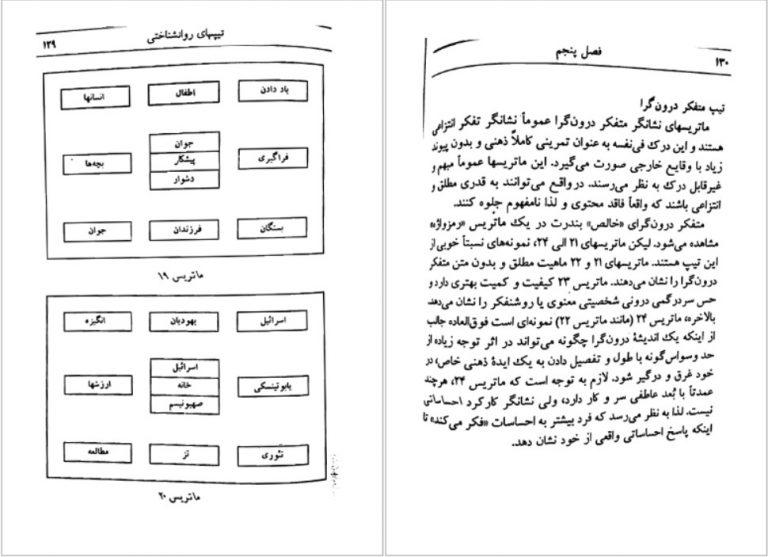 تیپهای روانشناختی
۱۲۹
یاد دادن
اطفال
انسانها
فراگیری
جوان
پیشکار
دشوار
بچه‌ها
بستگان
فرزندان
جوان
ماتریس ۱۹
اسرائیل
یهودیان
انگیزه
یابوتینسکی
اسرائیل
خانه
صهیونیسم
ارزشها
تئوری
تز
مطالعه
ماتریس ۲۰
۱۳۰
فصل پنجم
تیپ متفکر درون‌گرا
ماتریسهای نشانگر متفکر درون‌گرا عموماً نشانگر تفکر انتزاعی
هستند و این درک فی‌نفسه به عنوان تمرینی کاملاً ذهنی و بدون پیوند
زیاد با وقایع خارجی صورت می‌گیرد. این ماتریسها عموماً مبهم و
غیرقابل درک به نظر می‌رسند. درواقع می‌توانند به قدری مطلق و
انتزاعی باشند که واقعاً فاقد محتوی و لذا نامفهوم جلوه کنند.
متفکر درون‌گرای «خالص» بندرت در یک ماتریس «رمزواژه»
مشاهده می‌شود. لیکن ماتریسهای ۲۱ الی ۲۴، نمونه‌های نسبتاً خوبی از
این تیپ هستند. ماتریسهای ۲۱ و ۲۲ ماهیت مطلق و بدون متن متفکر
درون‌گرا را نشان می‌دهند. ماتریس ۲۳ کیفیت و کمیت بهتری دارد و
حس سردرگمی درونی شخصیتی معنوی یا روشنفکر را نشان می‌دهد.
بالاخره، ماتریس ۲۴ (مانند ماتریس ۲۲) نمونه‌ای است فوق‌العاده جالب
از اینکه یک اندیشهٔ درون‌گرا چگونه می‌تواند در اثر توجه زیاده از
حد وسواس‌گونه با طول و تفصیل دادن به یک ایدهٔ ذهنی خاص، در
خود غرق و درگیر شود. لازم به توجه است که ماتریس ۲۴، هرچند
عمدتاً با بُعد عاطفی سر و کار دارد، ولی نشانگر کارکرد احساساتی
نیست. لذا به نظر می‌رسد که فرد بیشتر به احساسات «فکر می‌کند» تا
اینکه پاسخ احساساتی واقعی از خود نشان دهد.